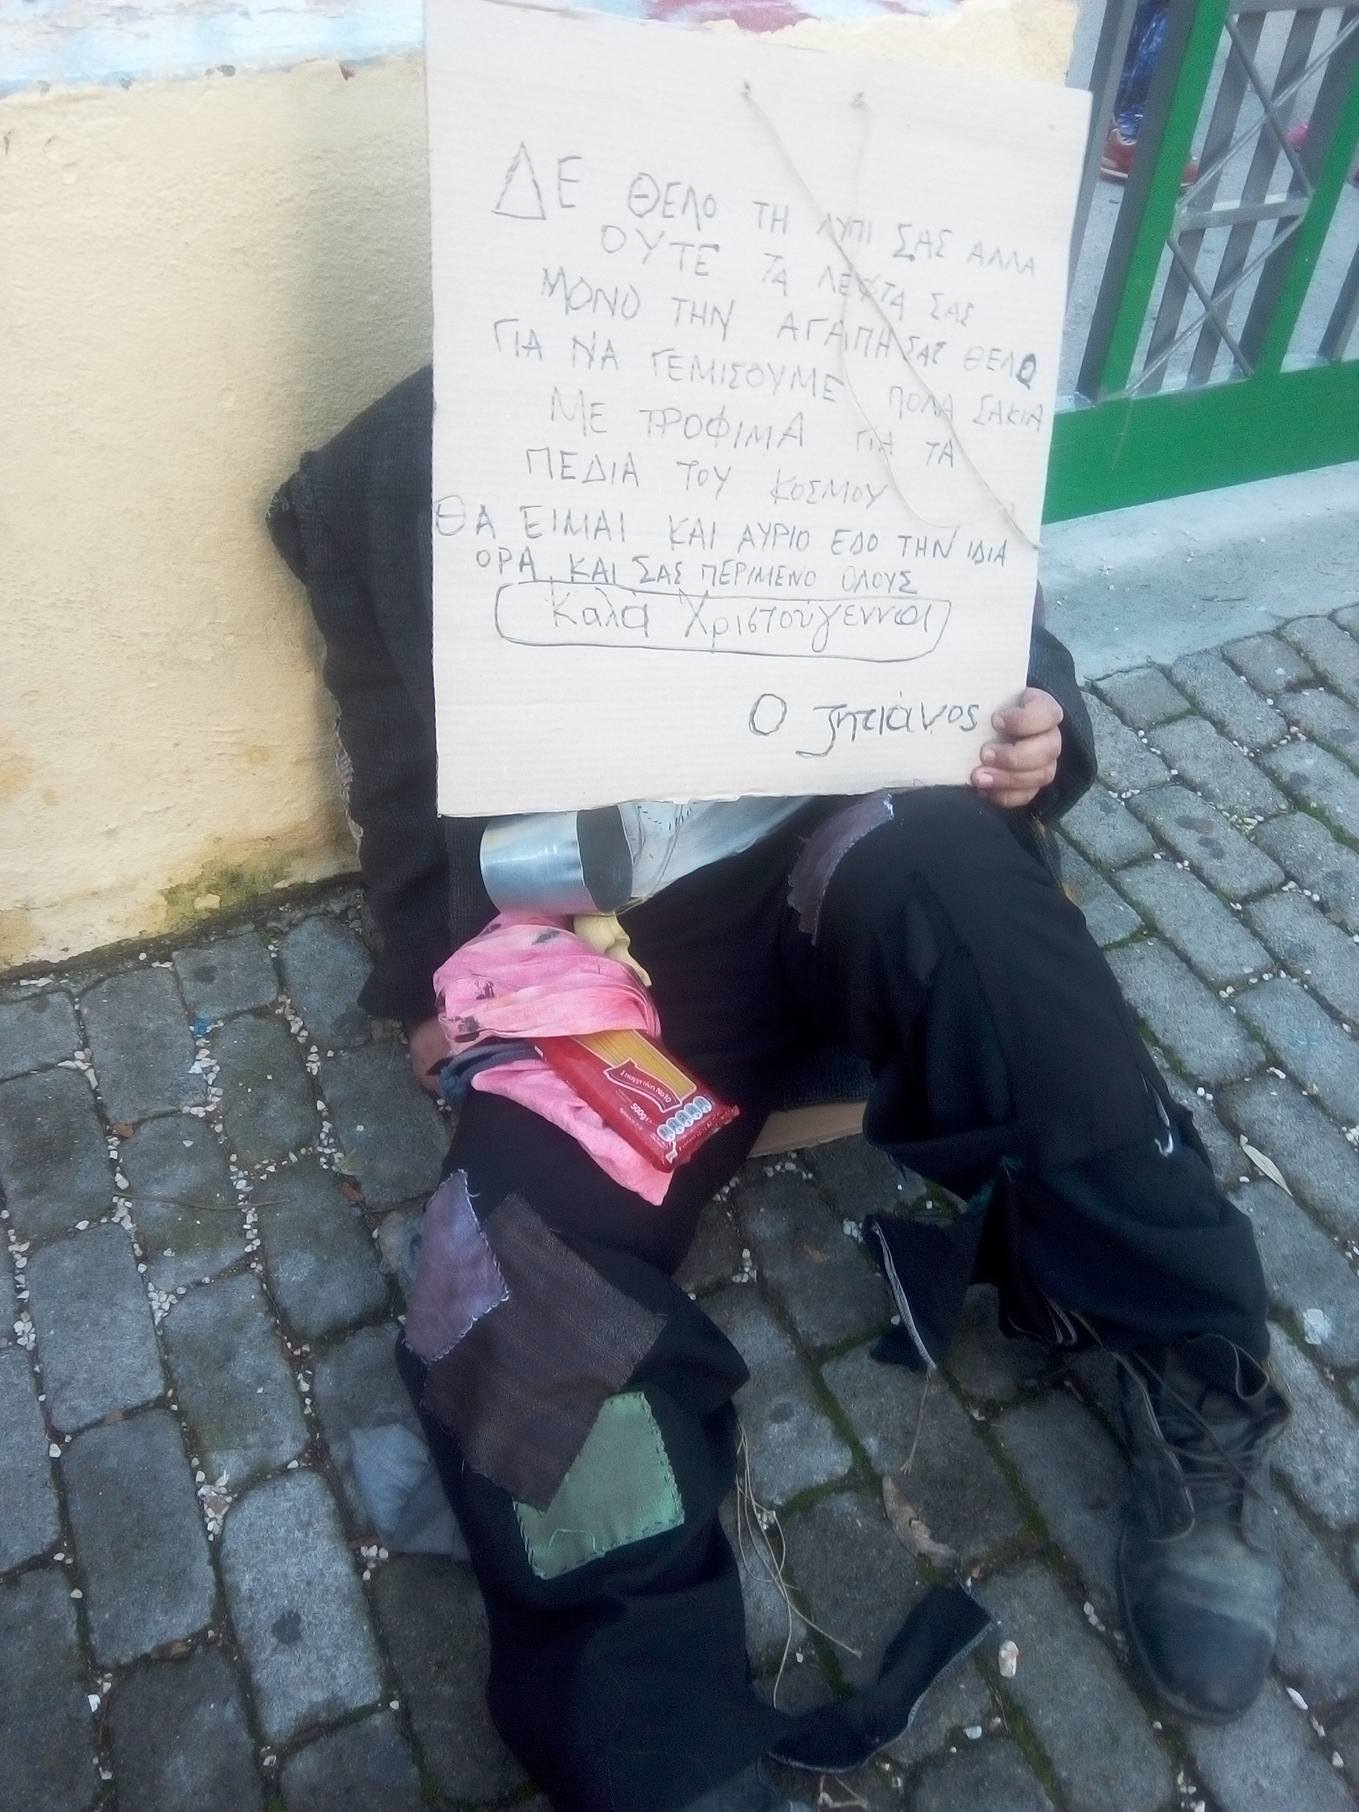 ΔΕ ΘΕΛΟ ΤΗ ΛΥΠΙ ΣΑΣ ΑΛΛΑ
ΟΥΤΕ ΤΑ ΛΕΦΤΑ ΣΑΣ
ΜΟΝΟ ΤΗΝ ΑΓΑΠΗ ΣΑΣ ΘΕΛΟ
ΓΙΑ ΝΑ ΓΕΜΙΣΟΥΜΕ ΠΟΛΑ ΣΑΚΙΑ
ΜΕ ΤΡΟΦΙΜΑ ΓΙΑ ΤΑ
ΠΕΔΙΑ ΤΟΥ ΚΟΣΜΟΥ
ΘΑ ΕΙΜΑΙ ΚΑΙ ΑΥΡΙΟ ΕΔΟ ΤΗΝ ΙΔΙΑ
ΟΡΑ ΚΑΙ ΣΑΣ ΠΕΡΙΜΕΝΟ ΟΛΟΥΣ
Καλά Χριστούγεννα
Ο ζητιάνος
Σπαγγετίνη Νο10
500g